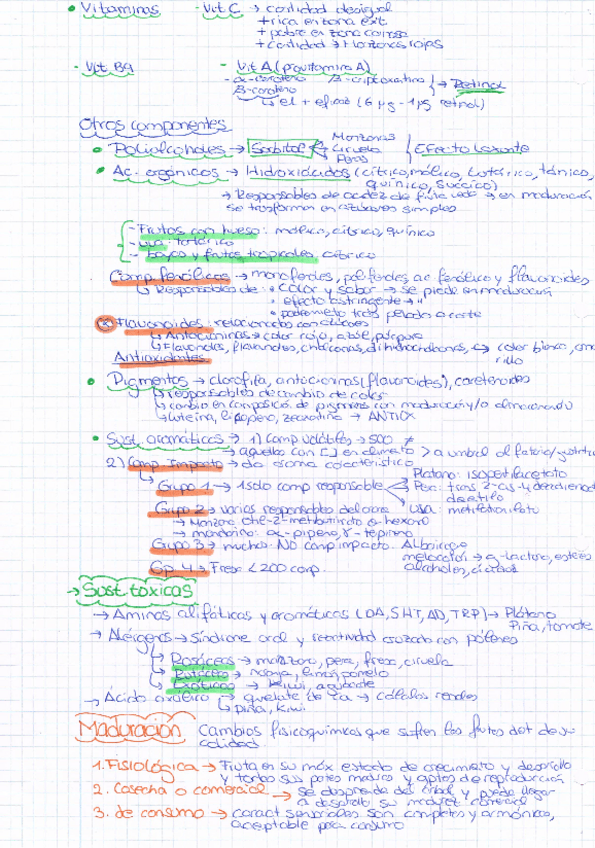 • Vitaminas - Vit C → cantidad desigual
+ rica en zona ext.
+ pobre en zona carnosa
+ cantidad → Manzanas rojas
- Vit B9 - Vit A (provitamina A)
- α-caroteno β-criptoxantina → Retinol
β-caroteno
↳ el + eficaz (6 µg - 1 µg retinol)
Otros componentes
• Polialcoholes → Sorbitol Manzanas Ciruela Peras Efecto laxante
• Ac. orgánicos → Hidroxiácidos (cítrico, málico, tartárico, tánico,
quínico, succico)
→ Responsables de acidez de fruta → en maduración
se trasforman en azúcares simples
- Frutos con hueso: málico, cítrico, quínico
- uva: tartárico
- baya y frutas tropicales cítrico
Comp. fenólicos → monofenoles, polifenoles, ac. fenólico y flavonoides
↳ Responsables de: • color y sabor → se pierde en maduración
• efecto astringente → "
• pardeamiento tras pelado o corte
Flavonoides: relacionados con colores
↳ Antocianinas → color rojo, azul, púrpura
↳ Flavonoles, flavanoles, chalconas, dihidrochalconas, ↔ color blanco, ama
rillo
Antioxidantes
• Pigmentos → clorofila, antocianinas (flavonoides), carotenoides
↳ responsables de cambio de color
↳ cambio en composición de pigmentos con maduración y/o almacenando
↳ luteína, licopeno, zeaxantina → ANTIOX
• Sust. aromáticas → 1) Comp volátiles → 500 ≠
→ aquellos con [] en alimento > a umbral olfatorio/gustativo
2) Comp. Impacto → da aroma característico
Grupo 1 → 1 solo comp responsable Plátano: isopentilacetato
Pera: tras 2-cis-4-decadienoato
de etilo
Uva: metilantranilato
Grupo 2 → varios responsables del aroma
→ Manzana etil-2-metilbutirato o hexanal
→ mandarina: α-pipeno, γ-tepineno
Grupo 3 → muchos. NO comp impacto. Albaricoque
melocotón → α-lactona, ésteres
alcoholes, ácidos
Gp. 4 → Fresa < 200 comp.
→ Sust. tóxicas
→ Aminas alifáticas y aromáticas (DA, 5HT, AD, TRP) → Plátano
Piña, tomate
→ Alérgenos → Síndrome oral y reactividad cruzada con pólenes
↳ Rosáceas → manzana, pera, fresa, ciruela
↳ Rutáceas → naranja, limón, pomelo
↳ Exóticas → Kiwi, aguacate
→ Ácido oxálico → quelante de Ca → cálculos renales
↳ piña, kiwi
Maduración Cambios fisicoquímicos que sufren los frutos dat de su
calidad.
1. Fisiológica → Fruta en su máx estado de crecimiento y desarrollo
y todas sus partes maduras y aptas de reproducción
2. Cosecha o comercial → se desprende del árbol y puede llegar
a desarrollar su madurez comercial
3. de consumo → caract sensoriales son completas y armónicas,
aceptable para consumo